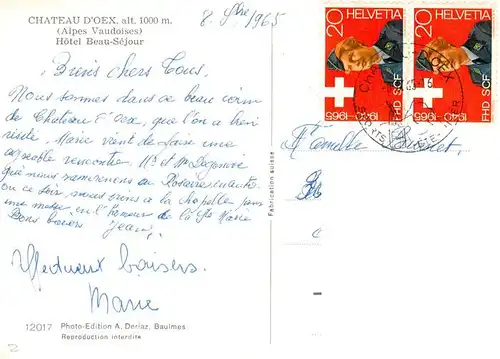 CHATEAU D'OEX, alt. 1000 m.
(Alpes Vaudoises)
Hôtel Beau-Séjour
8. 1965
Biens chers Tous,
Nous sommes dans ce beau coin
de Chateau d'oex, que l'on a bien
visité, Marie vient de faire une
agréable rencontre Mr et Mme
qui nous ramènerons au Rosaire en auto
ce soir, nous irons a la chapelle pour
une messe en l'honneur de la Ste Marie
Bons baisers Jean
baisers.
Marie
12017 Photo-Edition A. Deriaz, Baulmes
Reproduction interdite
Fabrication suisse
20 HELVETIA
1940-1965
FHD SCF
20 HELVETIA
1940-1965
FHD SCF
Famille